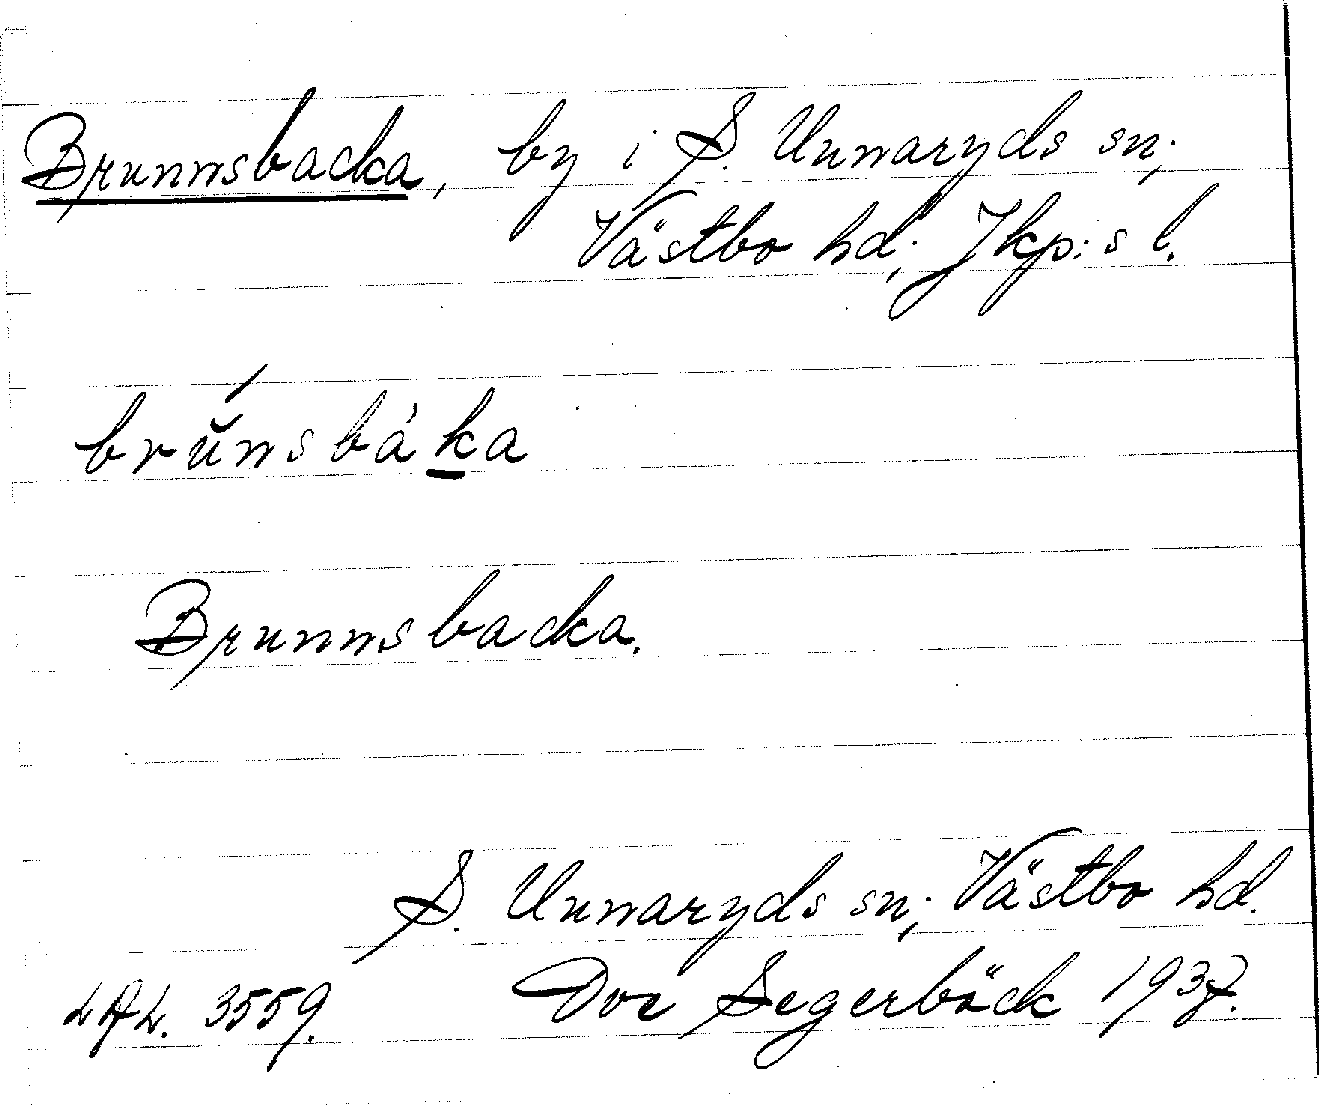 Brunnsbacka, by i S. Unnaryds sn;
Västbo hd; Jkp:s l.
brŭ́nsbàḵa
Brunnsbacka.
S. Unnaryds sn; Västbo hd.
LAL. 3559. Segerbäck 1937.